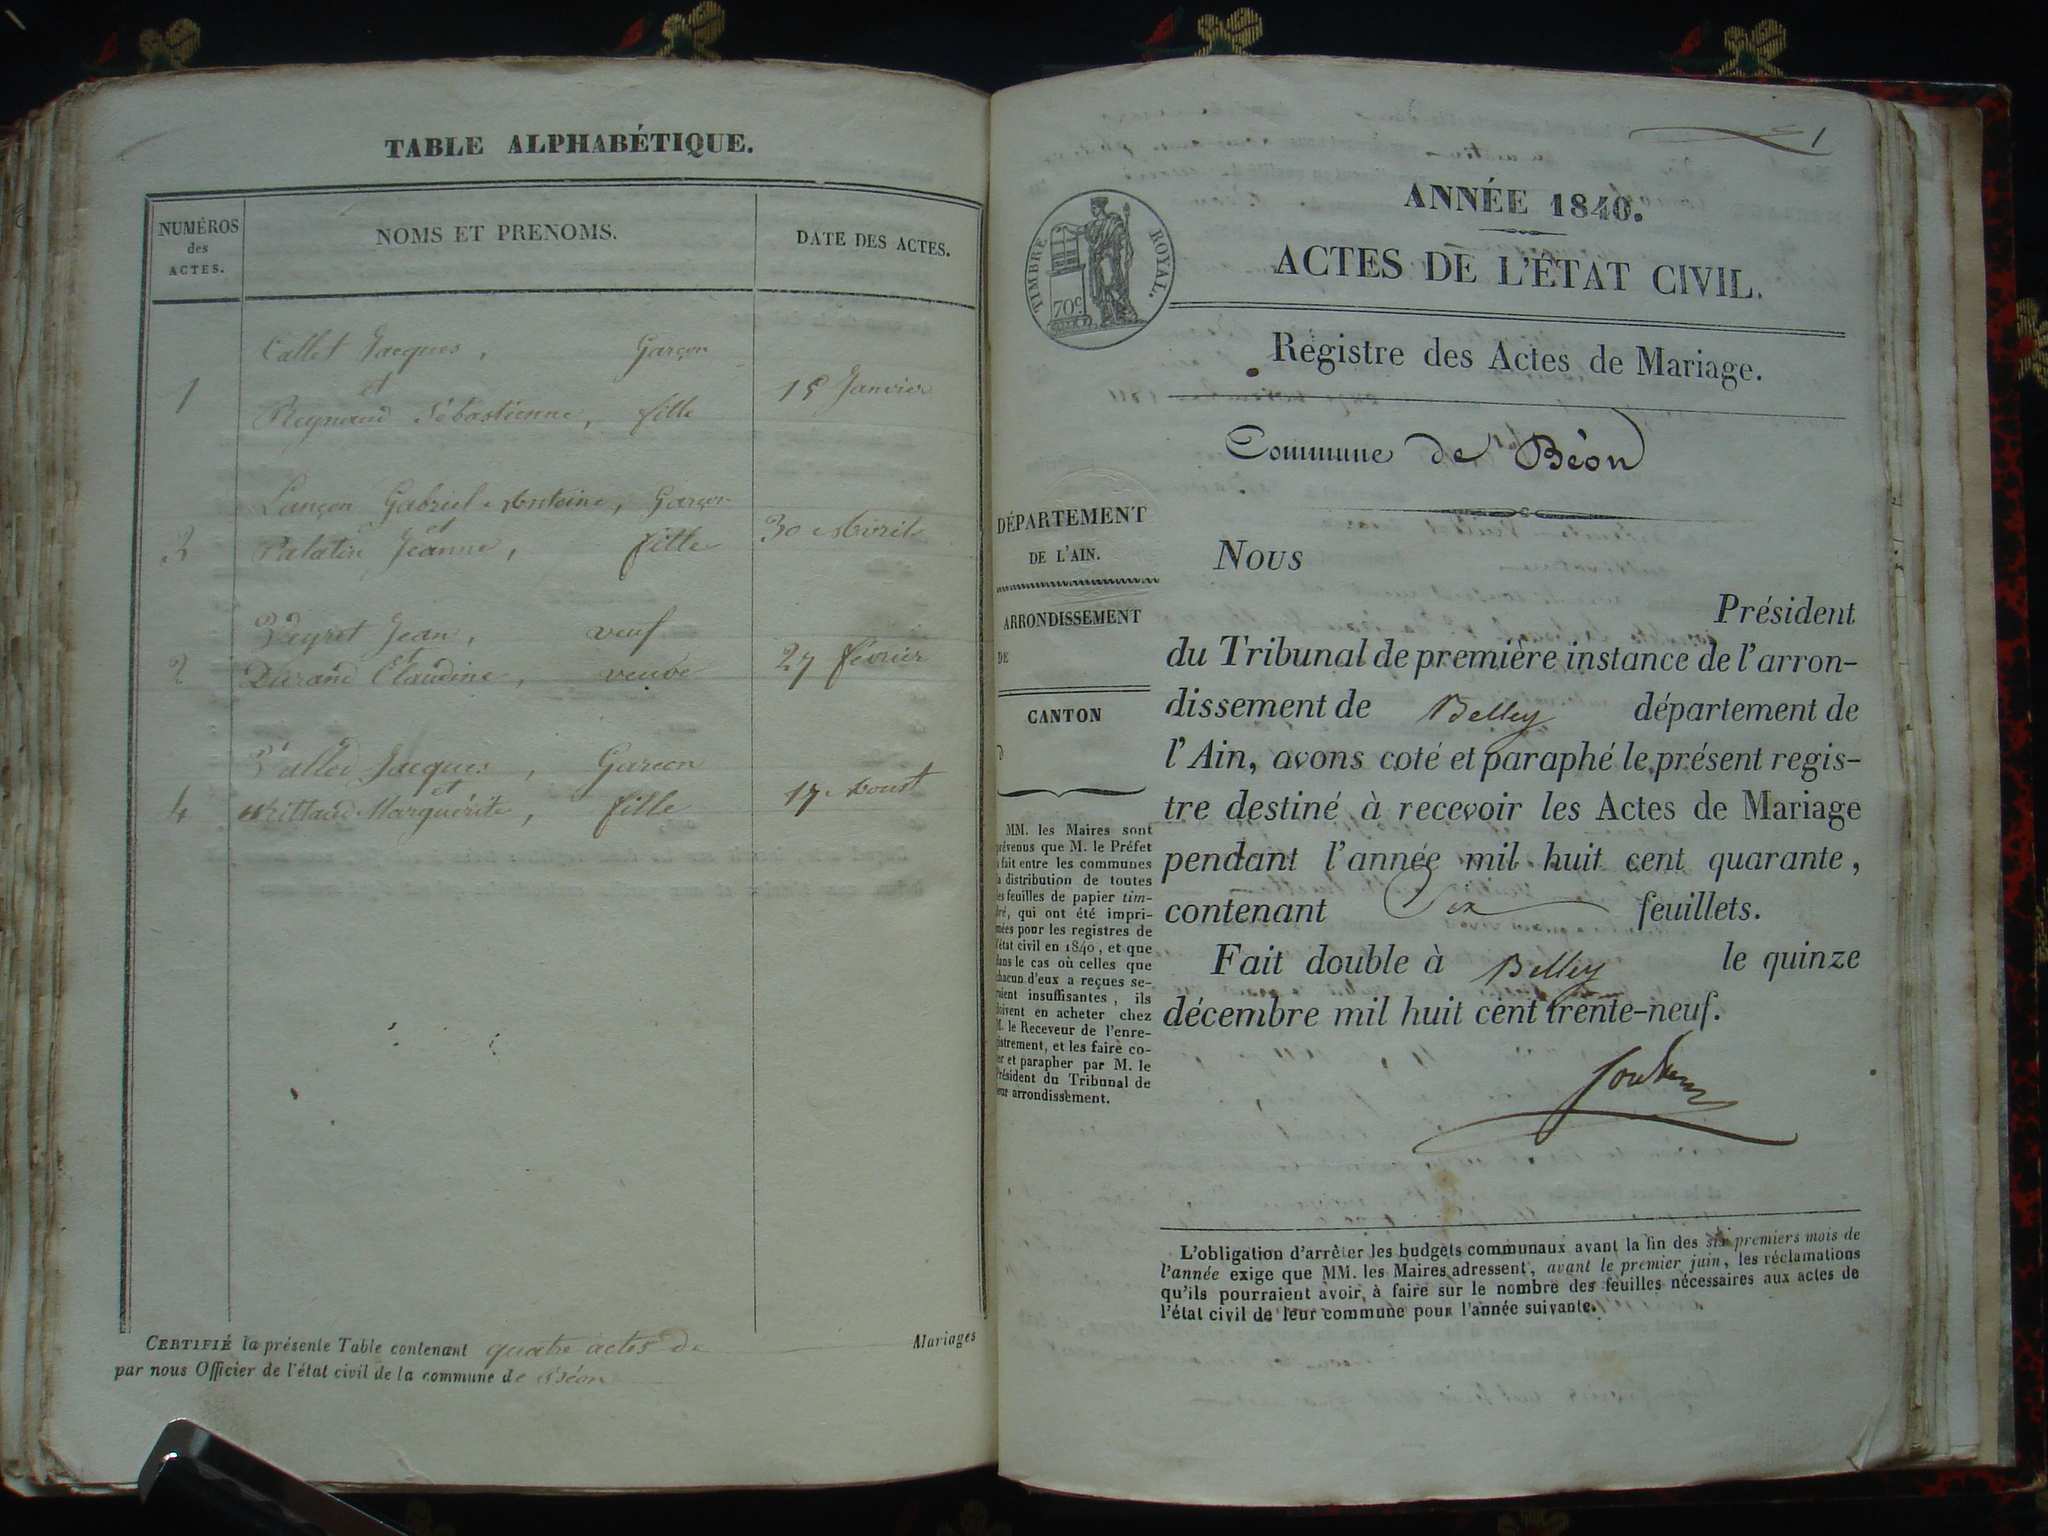 TABLE ALPHABÉTIQUE.
NUMÉROS
des
ACTES.
NOMS ET PRENOMS.
DATE DES ACTES.
Callet Jacques, Garçon
et
1 15 Janvier
Reynaud Sébastienne, fille
Lançon Gabriel Antoine, Garçon
et
3 Palatin Jeanne, fille 30 Avril
Veyret Jean, veuf
et
2 Durand Claudine, veuve 27 février
Vallod Jacques, Garcon
et
4 Marguérite, fille 17 Aoust
CERTIFIÉ la présente Table contenant quatre actes de Mariages
par nous Officier de l'état civil de la commune de Béon
1
TIMBRE ROYAL.
70c
ANNÉE 1840.
ACTES DE L'ÉTAT CIVIL.
Registre des Actes de Mariage.
Commune de Béon
DÉPARTEMENT
DE L'AIN.
ARRONDISSEMENT
DE
CANTON
D
MM. les Maires sont
prévenus que M. le Préfet
a fait entre les communes
la distribution de toutes
les feuilles de papier tim-
bré, qui ont été impri-
mées pour les registres de
l'état civil en 1840, et que
dans le cas où celles que
chacun d'eux a reçues se-
raient insuffisantes, ils
doivent en acheter chez
M. le Receveur de l'enre-
gistrement, et les faire co-
ter et parapher par M. le
Président du Tribunal de
leur arrondissement.
Nous
Président
du Tribunal de première instance de l'arron-
dissement de Belley département de
l'Ain, avons coté et paraphé le présent regis-
tre destiné à recevoir les Actes de Mariage
pendant l'année mil huit cent quarante,
contenant Six feuillets.
Fait double à Belley le quinze
décembre mil huit cent trente-neuf.
L'obligation d'arrêter les budgets communaux avant la fin des six premiers mois de
l'année exige que MM. les Maires adressent, avant le premier juin, les réclamations
qu'ils pourraient avoir à faire sur le nombre des feuilles nécessaires aux actes de
l'état civil de leur commune pour l'année suivante.